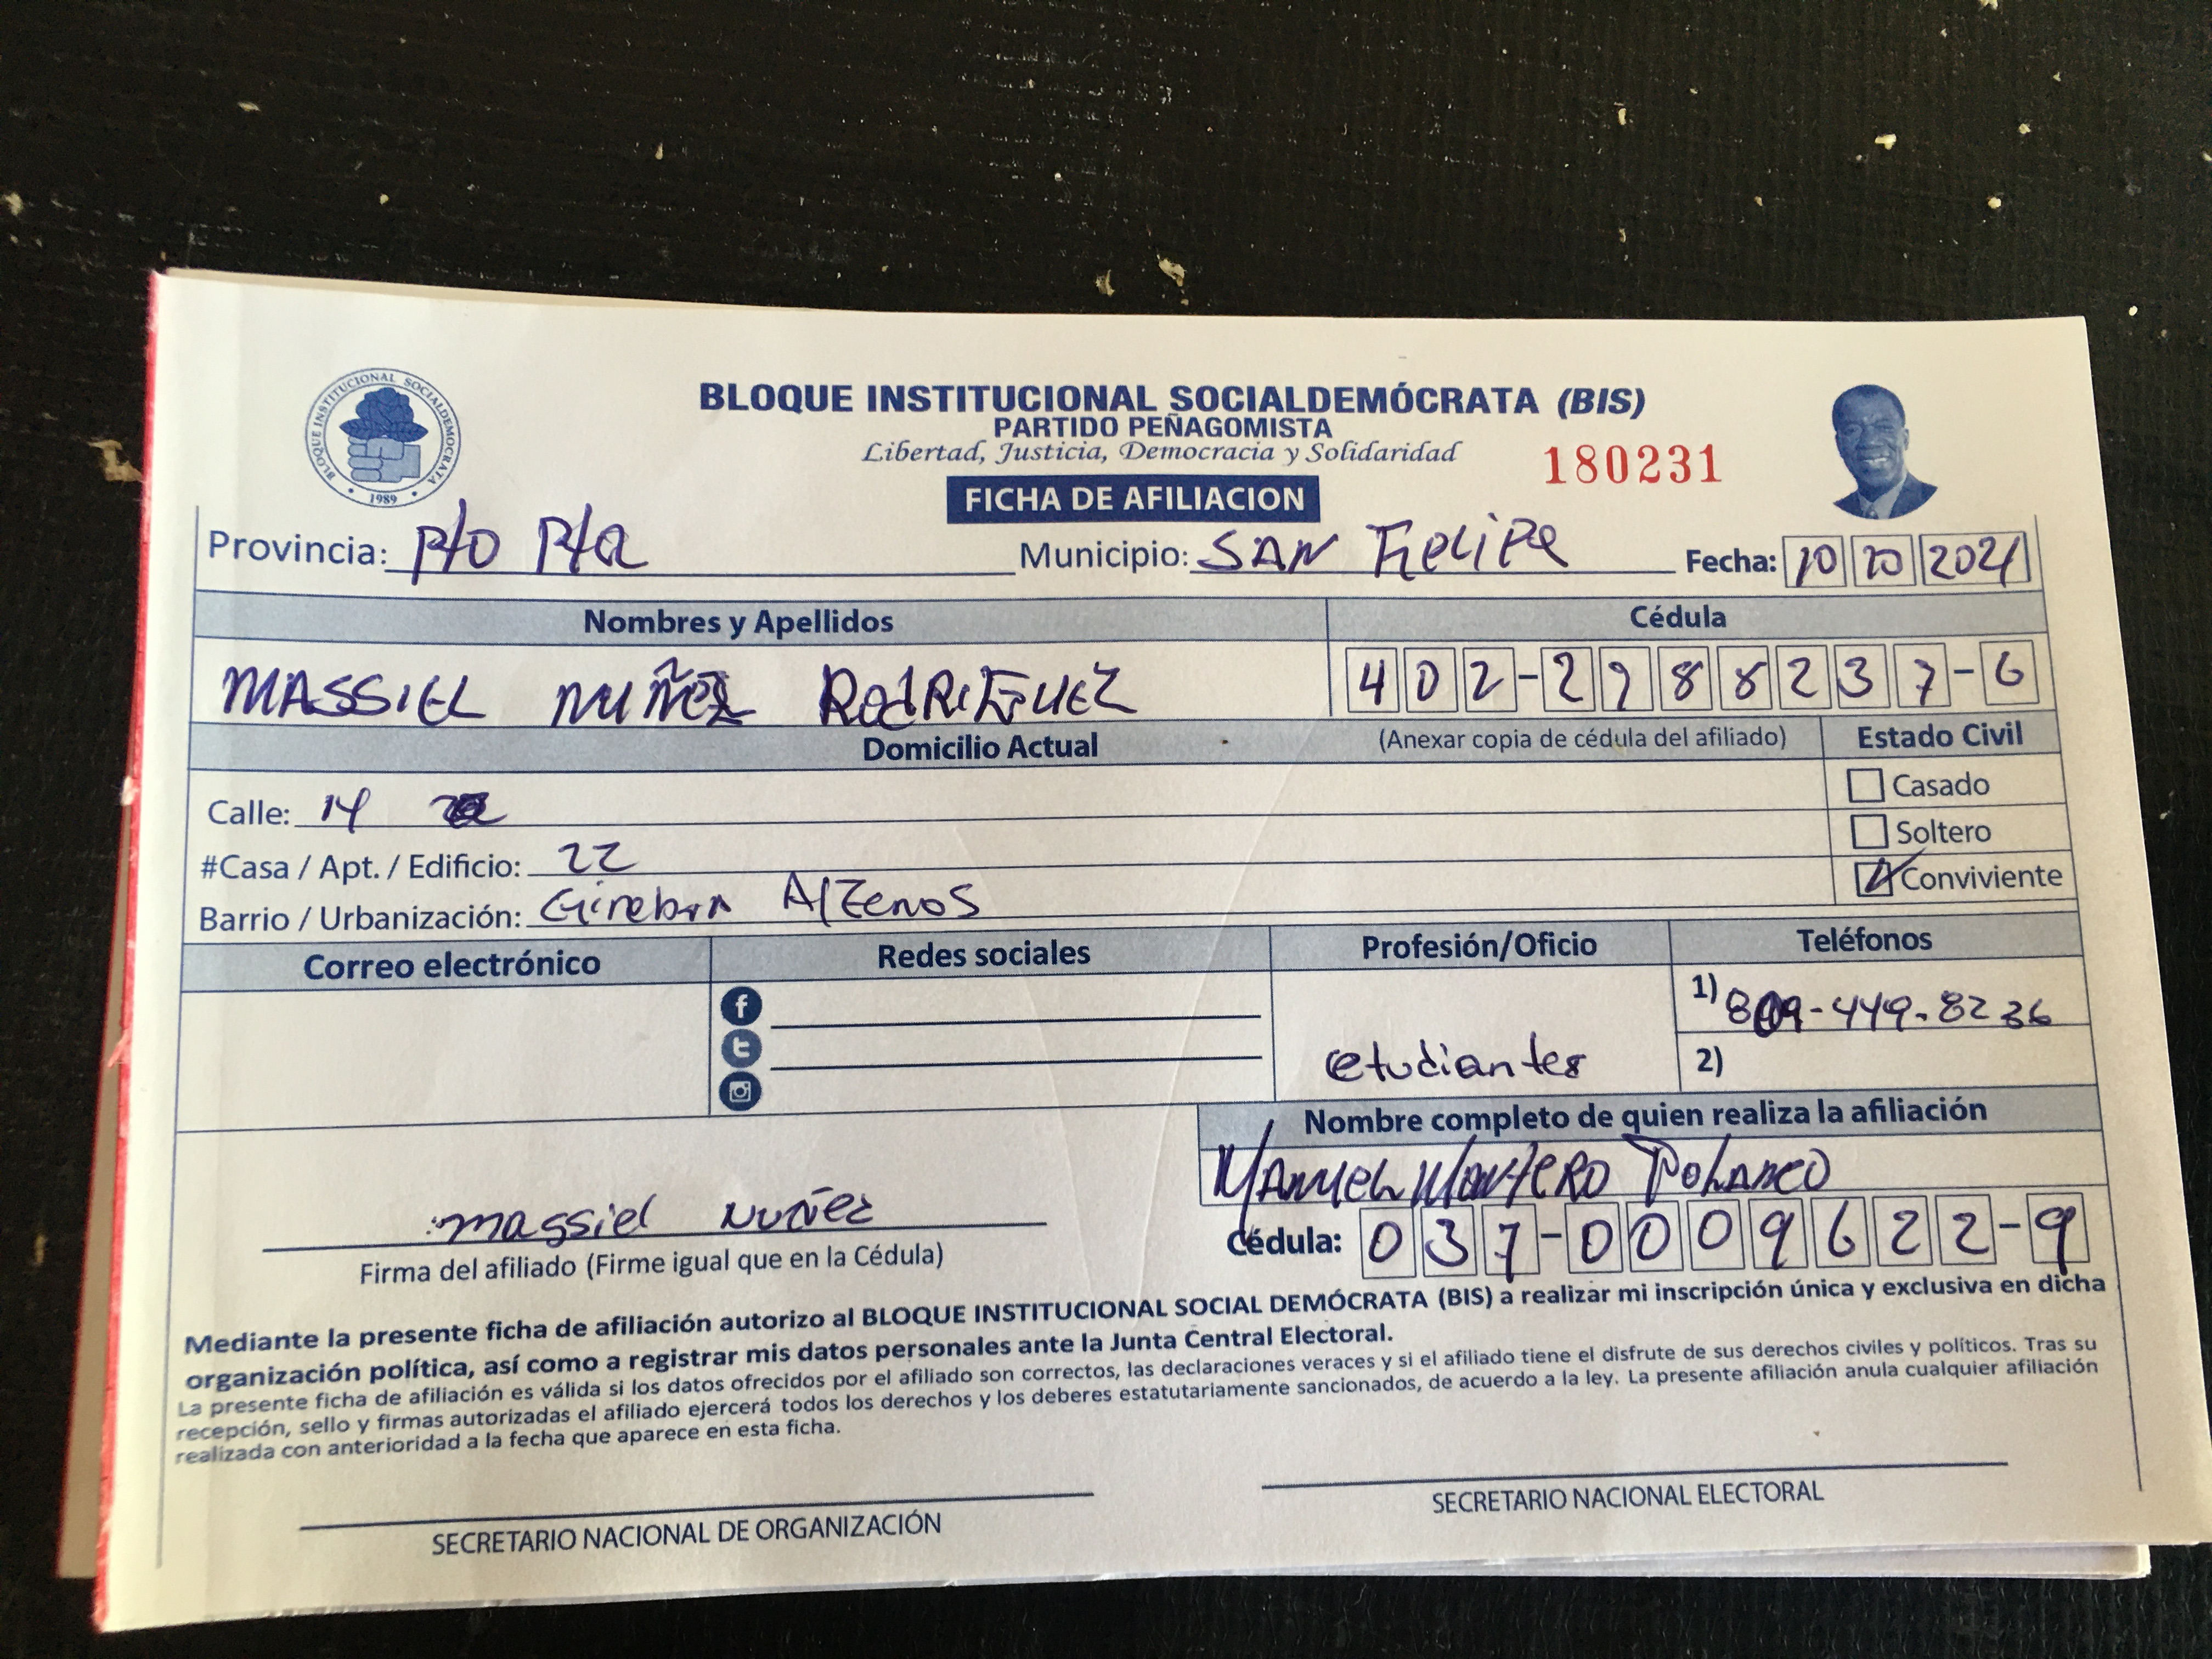 BLOQUE INSTITUCIONAL SOCIALDEMOCRATA
1989
BLOQUE INSTITUCIONAL SOCIALDEMÓCRATA (BIS)
PARTIDO PEÑAGOMISTA
Libertad, Justicia, Democracia y Solidaridad
180231
FICHA DE AFILIACION
Provincia: P/O P/a Municipio: SAN Felipe Fecha: 10 10 2021
Nombres y Apellidos Cédula
MASSIEL NUÑEZ RodRIGUEZ 402-2988237-6
Domicilio Actual (Anexar copia de cédula del afiliado) Estado Civil
Casado
Calle: 14
Soltero
#Casa / Apt. / Edificio: 22
Conviviente
Barrio / Urbanización: Ginebra
Correo electrónico Redes sociales Profesión/Oficio Teléfonos
1) 809-449-8236
etudiantes
2)
Nombre completo de quien realiza la afiliación
MANUEL MONTERO POLANCO
massiel NUÑez
Firma del afiliado (Firme igual que en la Cédula)
Cédula: 037-0009622-9
Mediante la presente ficha de afiliación autorizo al BLOQUE INSTITUCIONAL SOCIAL DEMÓCRATA (BIS) a realizar mi inscripción única y exclusiva en dicha
organización política, así como a registrar mis datos personales ante la Junta Central Electoral.
La presente ficha de afiliación es válida si los datos ofrecidos por el afiliado son correctos, las declaraciones veraces y si el afiliado tiene el disfrute de sus derechos civiles y políticos. Tras su
recepción, sello y firmas autorizadas el afiliado ejercerá todos los derechos y los deberes estatutariamente sancionados, de acuerdo a la ley. La presente afiliación anula cualquier afiliación
realizada con anterioridad a la fecha que aparece en esta ficha.
SECRETARIO NACIONAL DE ORGANIZACIÓN
SECRETARIO NACIONAL ELECTORAL